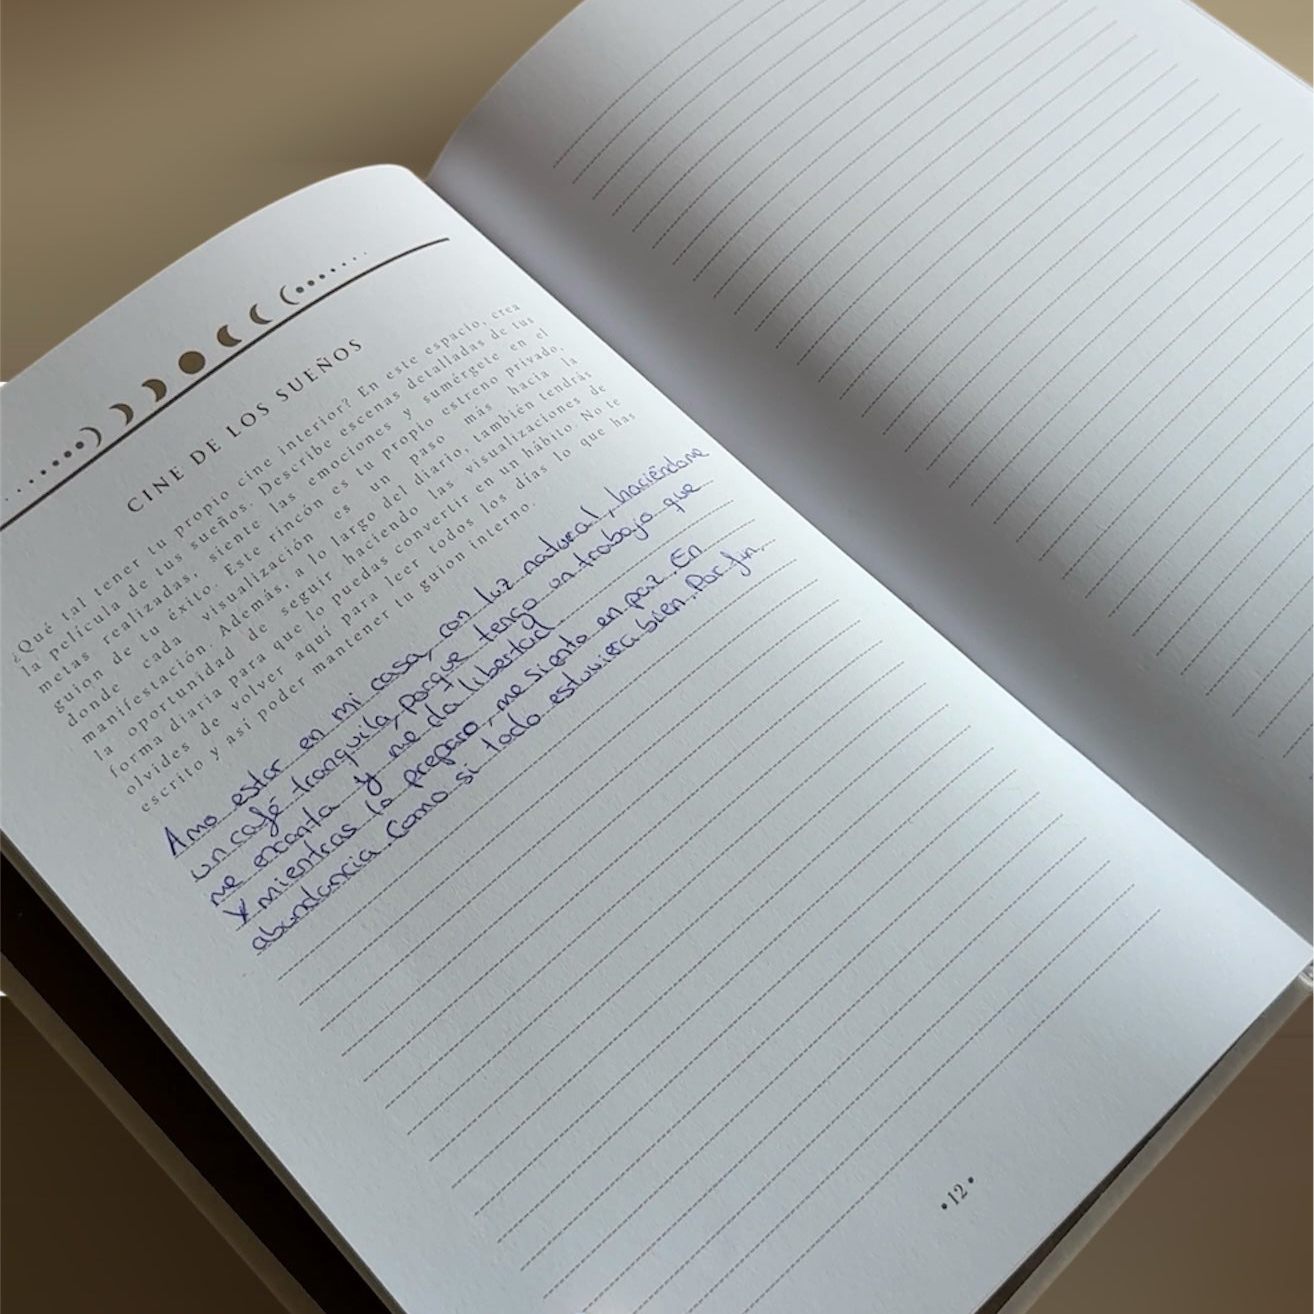 CINE DE LOS SUEÑOS
¿Qué tal tener tu propio cine interior? En este espacio, crea
la película de tus sueños. Describe escenas detalladas de tus
metas realizadas, siente las emociones y sumérgete en el
guion de tu éxito. Este rincón es tu propio estreno privado,
donde cada visualización es un paso más hacia la
manifestación. Además, a lo largo del diario, también tendrás
la oportunidad de seguir haciendo las visualizaciones de
forma diaria para que lo puedas convertir en un hábito. No te
olvides de volver aquí para leer todos los días lo que has
escrito y así poder mantener tu guion interno.
Amo estar en mi casa, con luz natural, haciéndome
un café tranquila, porque tengo un trabajo que
me encanta y me da libertad
Y mientras lo preparo, me siento en paz. En
abundancia. Como si todo estuviera bien. Por fin.
•12•